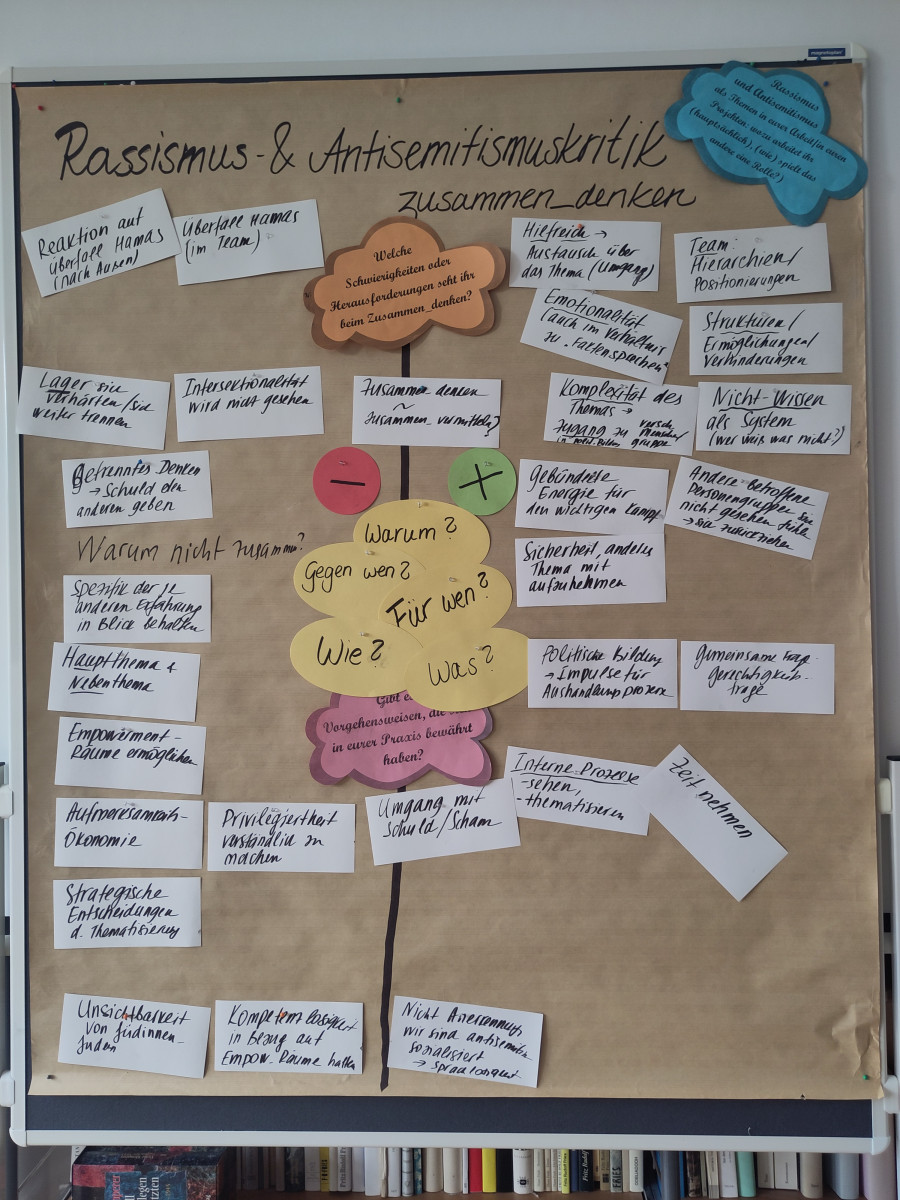 magnetoplan
Rassismus
und Antisemitismus
als Themen in eurer Arbeit/in euren
Projekten: wozu arbeitet ihr
(hauptsächlich), (wie) spielt das
andere eine Rolle?)
Rassismus- & Antisemitismuskritik
zusammen_denken
Reaktion auf
Überfall Hamas
(nach Außen)
Überfall Hamas
(im Team)
Welche
Schwierigkeiten oder
Herausforderungen seht ihr
beim Zusammen_denken?
Hilfreich →
Austausch über
das Thema (Umgang)
Team:
Hierarchien/
Positionierungen
Emotionalität
(auch im Verhältnis
zu "Faktensprechen"
Strukturen/
Ermöglichungen/
Verhinderungen
Lager sie
verhärten/sie
weiter trennen
Intersektionalität
wird nicht gesehen
Zusammen denken
~
zusammen vermitteln?
Komplexität des
Themas →
Zugang zu versch.
Menschen/
gruppe
in polit. Bildg
Nicht-Wissen
als System
(wer weiß was nicht?)
getrenntes Denken
→ Schuld den
anderen geben
−
+
Gebündelte
Energie für
den wichtigen Kampf
Andere betroffene
Personengruppen
nicht gesehen
→ zurückziehen
Warum nicht zusamm.?
Warum?
Gegen wen?
Für wen?
Wie?
Was?
Sicherheit, anderes
Thema mit
aufzunehmen
Spezifik der je
anderen Erfahrung
in Blick behalten
Hauptthema &
Nebenthema
Politische Bildung
→ Impulse für
Aushandlungsprozesse
gemeinsame Frage
gerechtigkeits-
frage
Gibt es
Vorgehensweisen, die
in eurer Praxis bewährt
haben?
Empowerment-
Räume ermöglichen
Interne Prozesse
-sehen,
-thematisieren
Zeit nehmen
Aufmerksamkeits-
Ökonomie
Privilegiertheit
verständlich zu
machen
Umgang mit
Schuld/Scham
Strategische
Entscheidungen
d. Thematisierung
Unsichtbarkeit
von Jüdinnen_
Juden
Kompetenzlosigkeit
in Bezug auf
Empow.-Räume halten
Nicht Anerkennung
wir sind antisemitisch
sozialisiert
→ Sprachlosigkeit